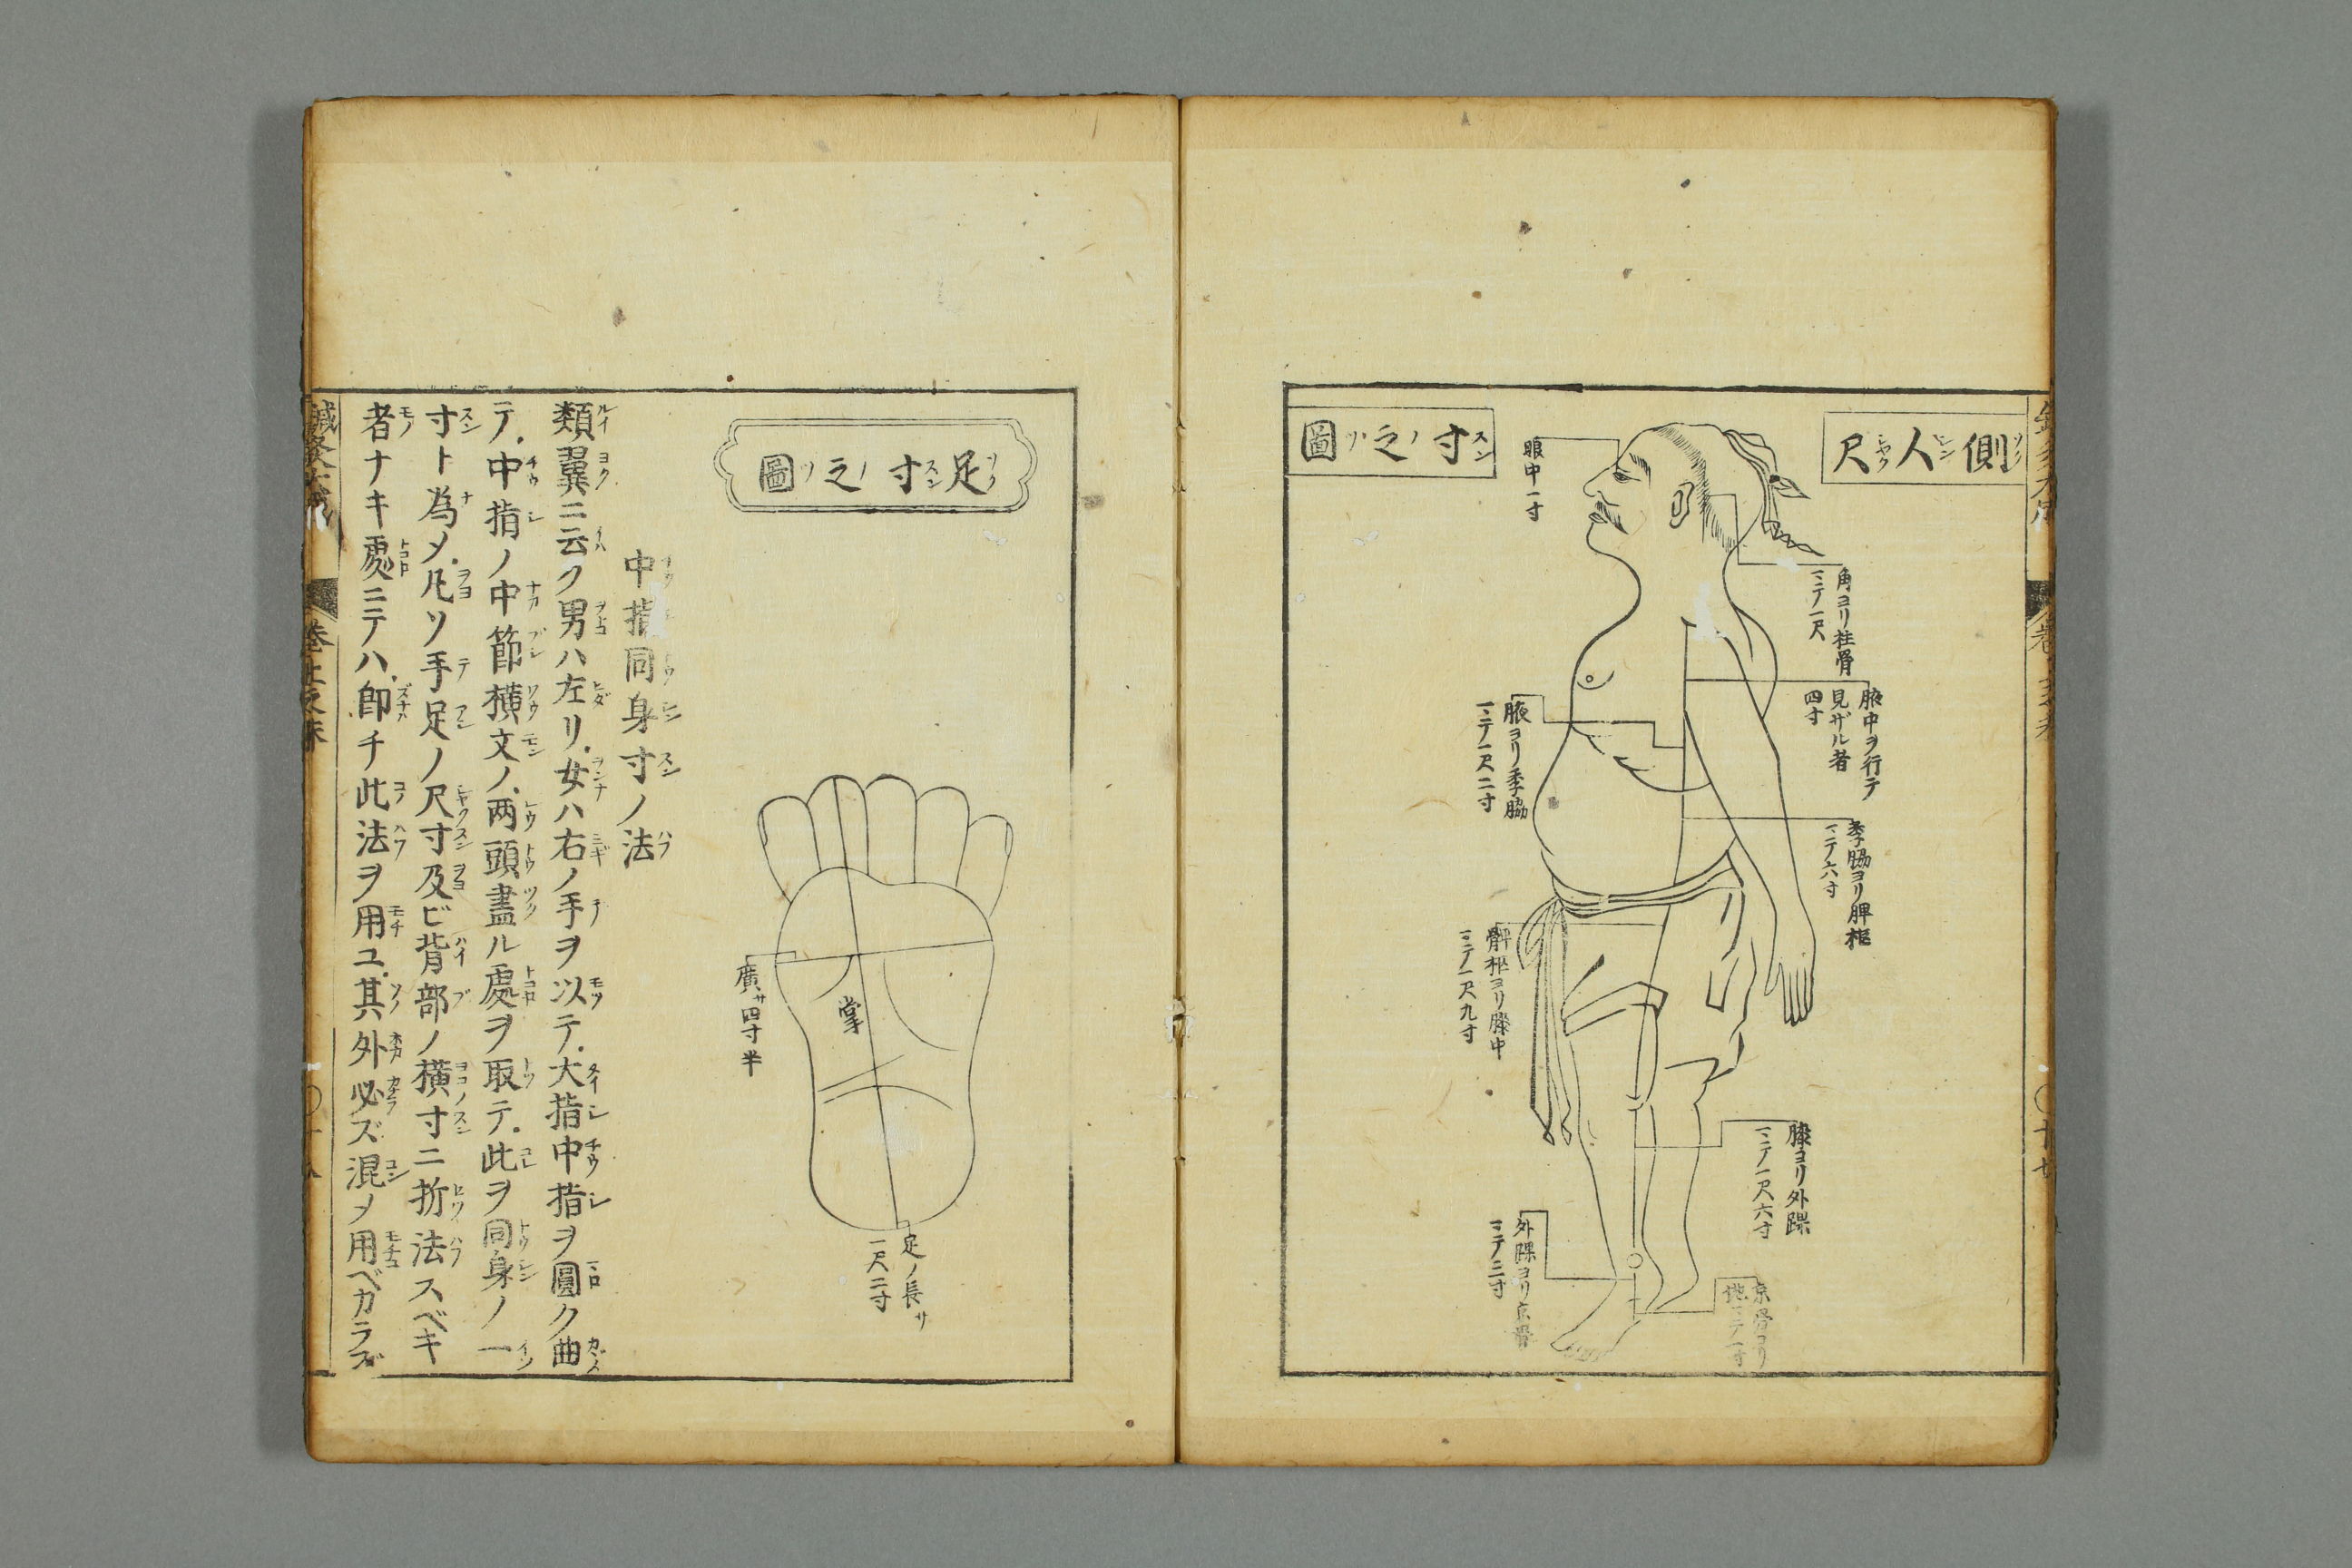 側人尺
寸之圖
眼中一寸
角ヨリ柱骨
マテ一尺
腋中ヲ行テ
見ザル者
四寸
腋ヨリ季脇
マテ一尺二寸
季脇ヨリ脾枢
マテ六寸
髀枢ヨリ膝中
マテ一尺九寸
膝ヨリ外踝
マテ一尺六寸
外踝ヨリ京骨
マテ三寸
京骨ヨリ
地マテ一寸
足寸之圖
廣サ四寸半
掌
足ノ長サ
一尺二寸
中指同身寸ノ法
類翼ニ云ク男ハ左リ女ハ右ノ手ヲ以テ大指中指ヲ圓ク曲
テ中指ノ中節横文ノ两頭盡ル處ヲ取テ此ヲ同身ノ一
寸ト為メ凡ソ手足ノ尺寸及ビ背部ノ横寸ニ折法スベキ
者ナキ處ニテハ即チ此法ヲ用ユ其外必ズ混メ用ベカラズ